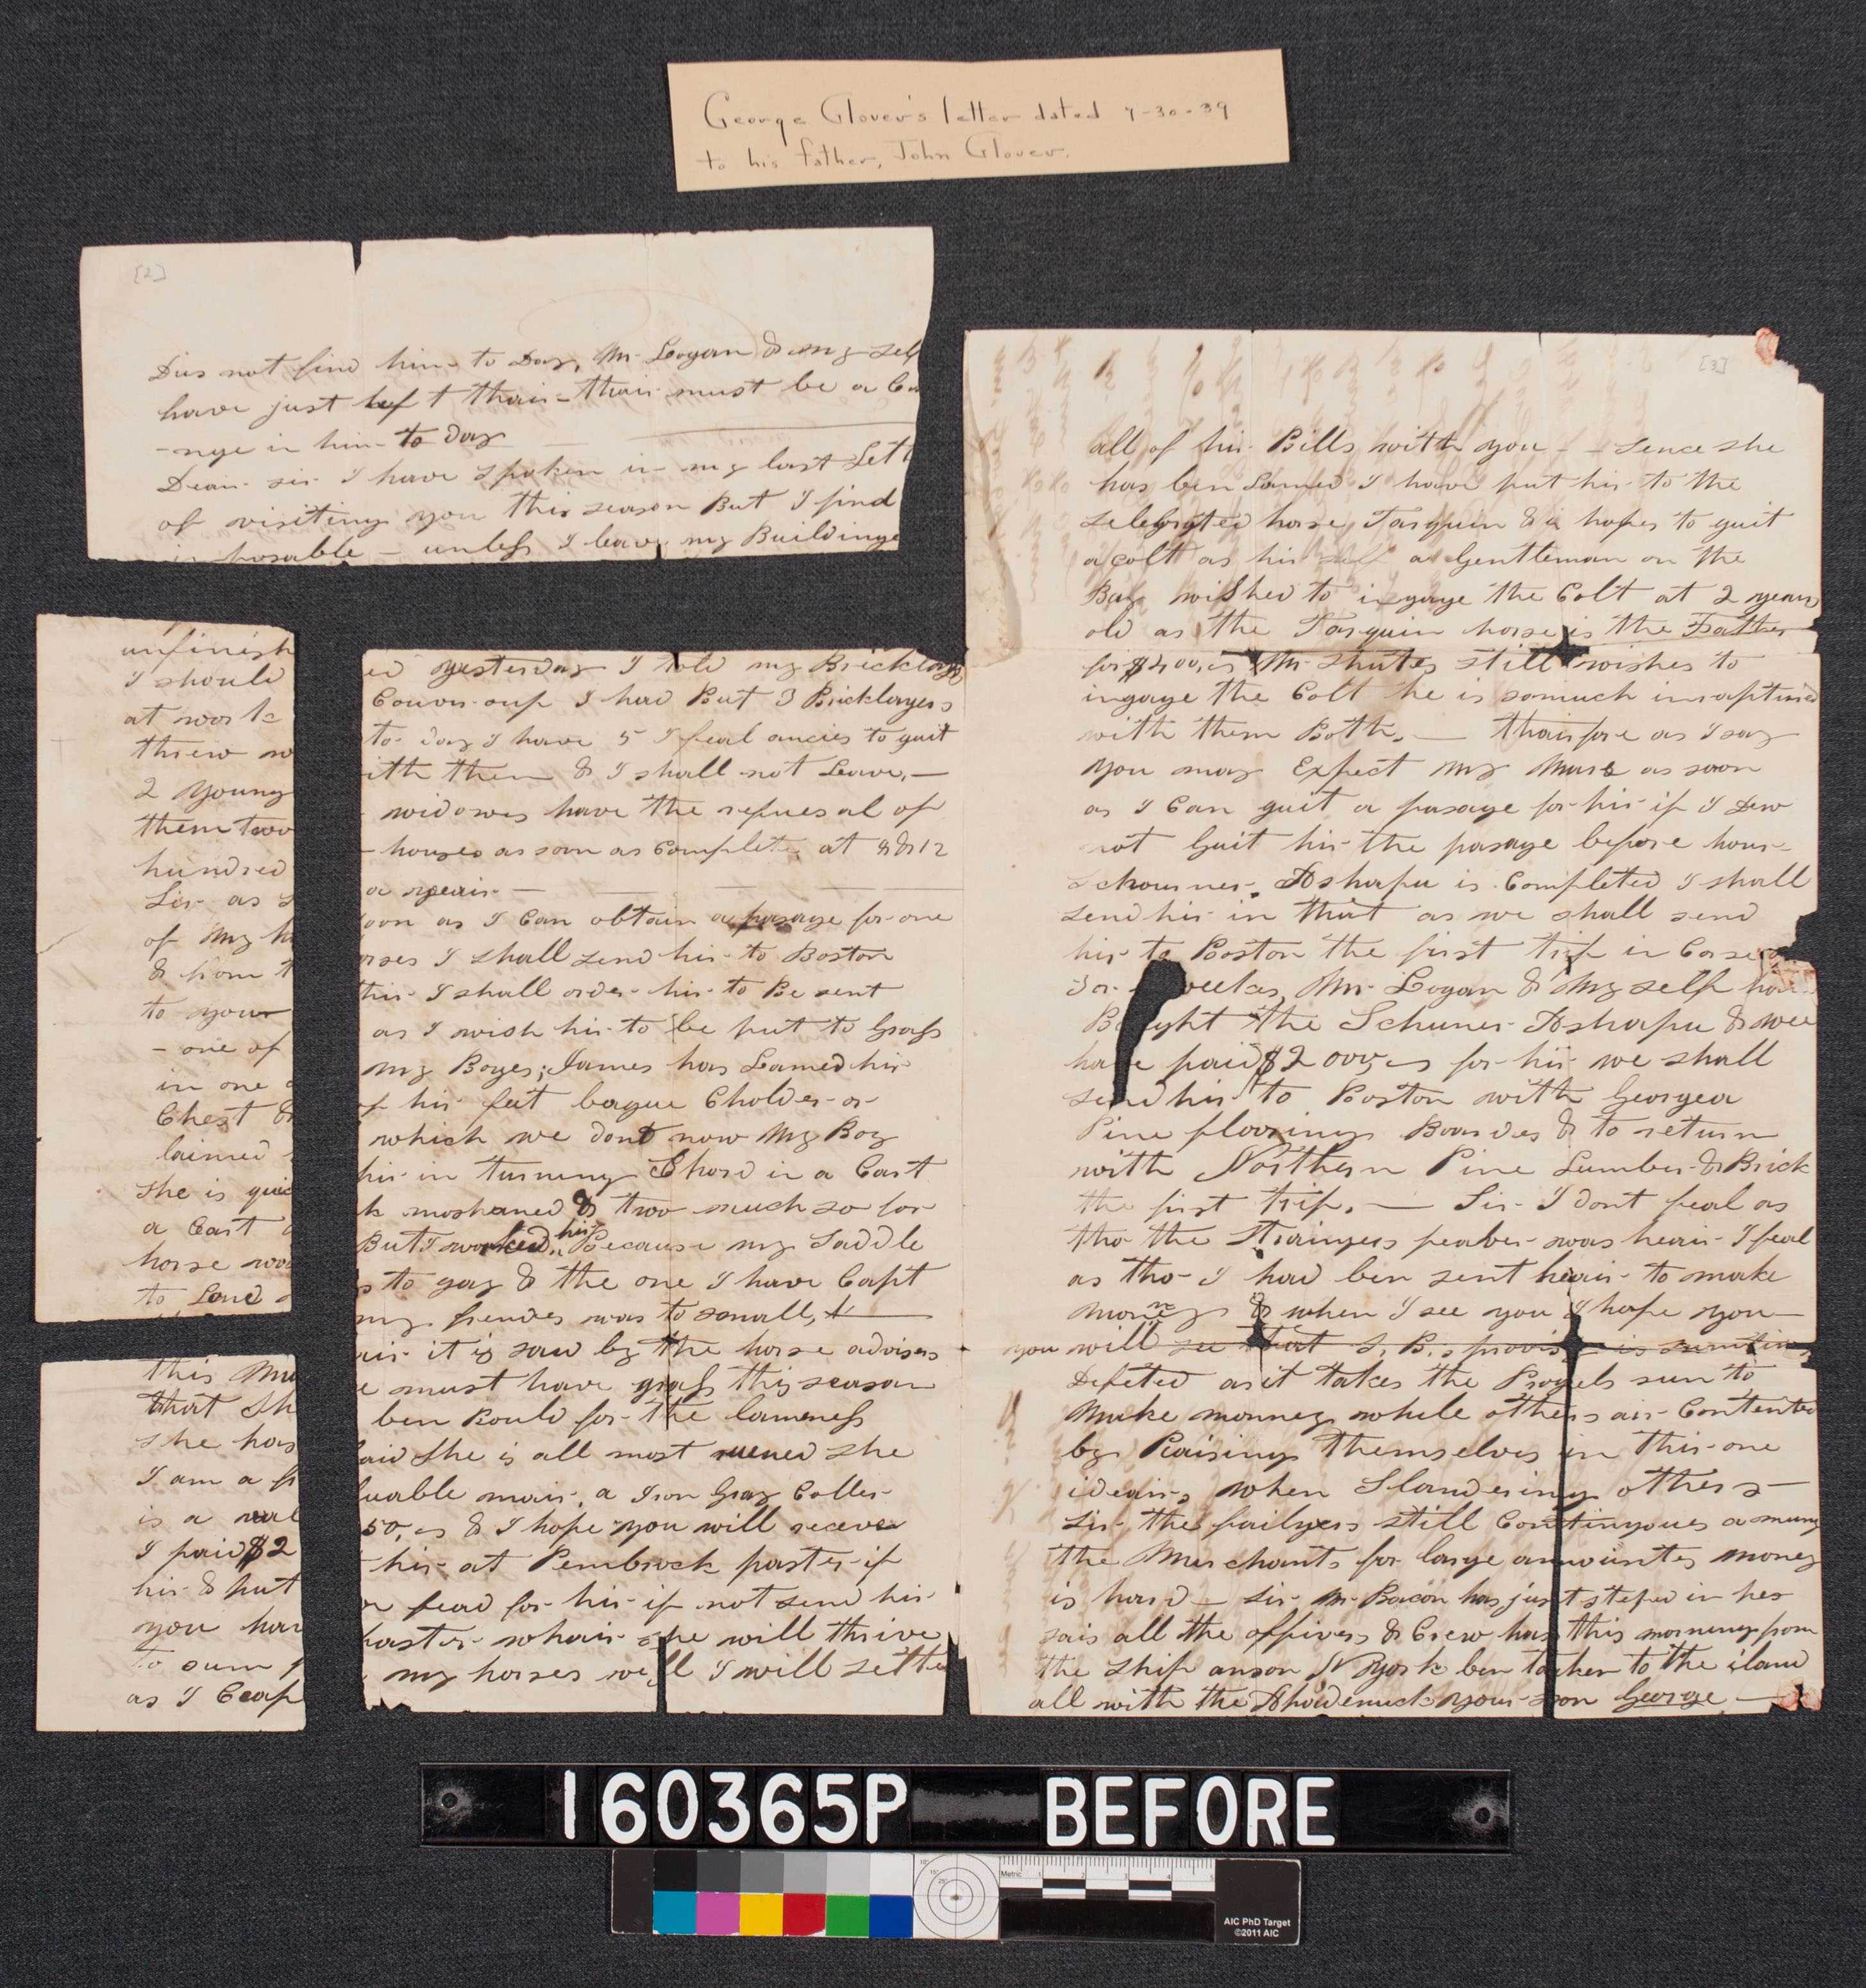 George Glover's letter dated 7-30-39
to his father, John Glover.
[2]
Dis not find him to Day, Mr Logan & my self
have just left thair - thair must be a Ca
-nge in him to day
Dear sir I have spoken in my last Lett
of visiting you this season But I find
imposable - unless I leave my Buildings
unfinish
I should
at work
threw
2 young
them two
hundred
Sir as s
of my h
& from t
to your
- one of
in one
Chest &
laimed
she is quic
a Cart
horse
to Lond
this
that Sh
she has
I am a
is a
I paid $2
his & put
you hav
to sum
as I Cap
ed yesterday I told my Bricklayer
I had But 3 Bricklayers
to day I have 5 I feal ancies to guit
ith them & I shall not Leave, —
widowes have the refuesal of
- houses as soon as Complete, at 8 & 12
a year —
oon as I Can obtain a pasage for one
orses I shall send hir to Boston
this I shall order hir to Be sent
as I wish hir to be put to Grass
my Boyes; James has Lamed hir
of hir feet Cholder or
which we dont now My Boy
hir in turning Short in a Cart
k & two much so for
But I worked hir Because my Saddle
s to gay & the one I have Capt
my was to small,
air it is saw by the horse advisers
e must have grass this season
ben for the lameness
aid She is all most ruened she
luable mair, a Iron Gray Coller
50, & I hope you will receve
hir at Pembrock paster if
or fead for hir if not send hir
paster whair she will thrive
my horses well I will settle
[3]
all of hir Bills with you - - sence she
has ben Lamed I have put hir to the
selebrated horse, Tarquin & in hopes to guit
a colt as hir self a Gentleman on the
Bay wished to ingage the Colt at 2 years
old as the Tarquin horse is the Father
for $400, Mr Shutes still wishes to
ingage the Colt he is somuch inraptured
with them Both. — thairfore as I say
you may Expect my Mare as soon
as I Can guit a pasage for hir if I Dew
not Guit hir the pasage before hour
Schouner is Completed I shall
send hir in that as we shall send
hir to Boston the first trip in Corse
weekes, Mr Logan & My self have
Bought the Schuner & wee
have paid $2000 for hir we shall
send hir to Boston with Georgea
Pine floorings Boardes & to return
with Northern Pine Lumber & Brick
the first trip. — Sir I dont feal as
tho the Straingers feaver was hear I feal
as tho I had ben sent hear to make
money & when I see you I hope you
you will see that S, B,
Defeted as it takes the sun to
Make monney while others air Contented
by Raising themselves in this one
idear, when Slandering others -
Sir the failyers still Continyoues amung
the Merchants for large amounts money
is hard — Sir Mr Bacon has just steped in hes
sais all the offivers & Crew has this morning from
the Ship anson N York ben tacken to the iland
all with the your son George —
160365P BEFORE
Metric 1 2 3 4 5
AIC PhD Target
©2011 AIC